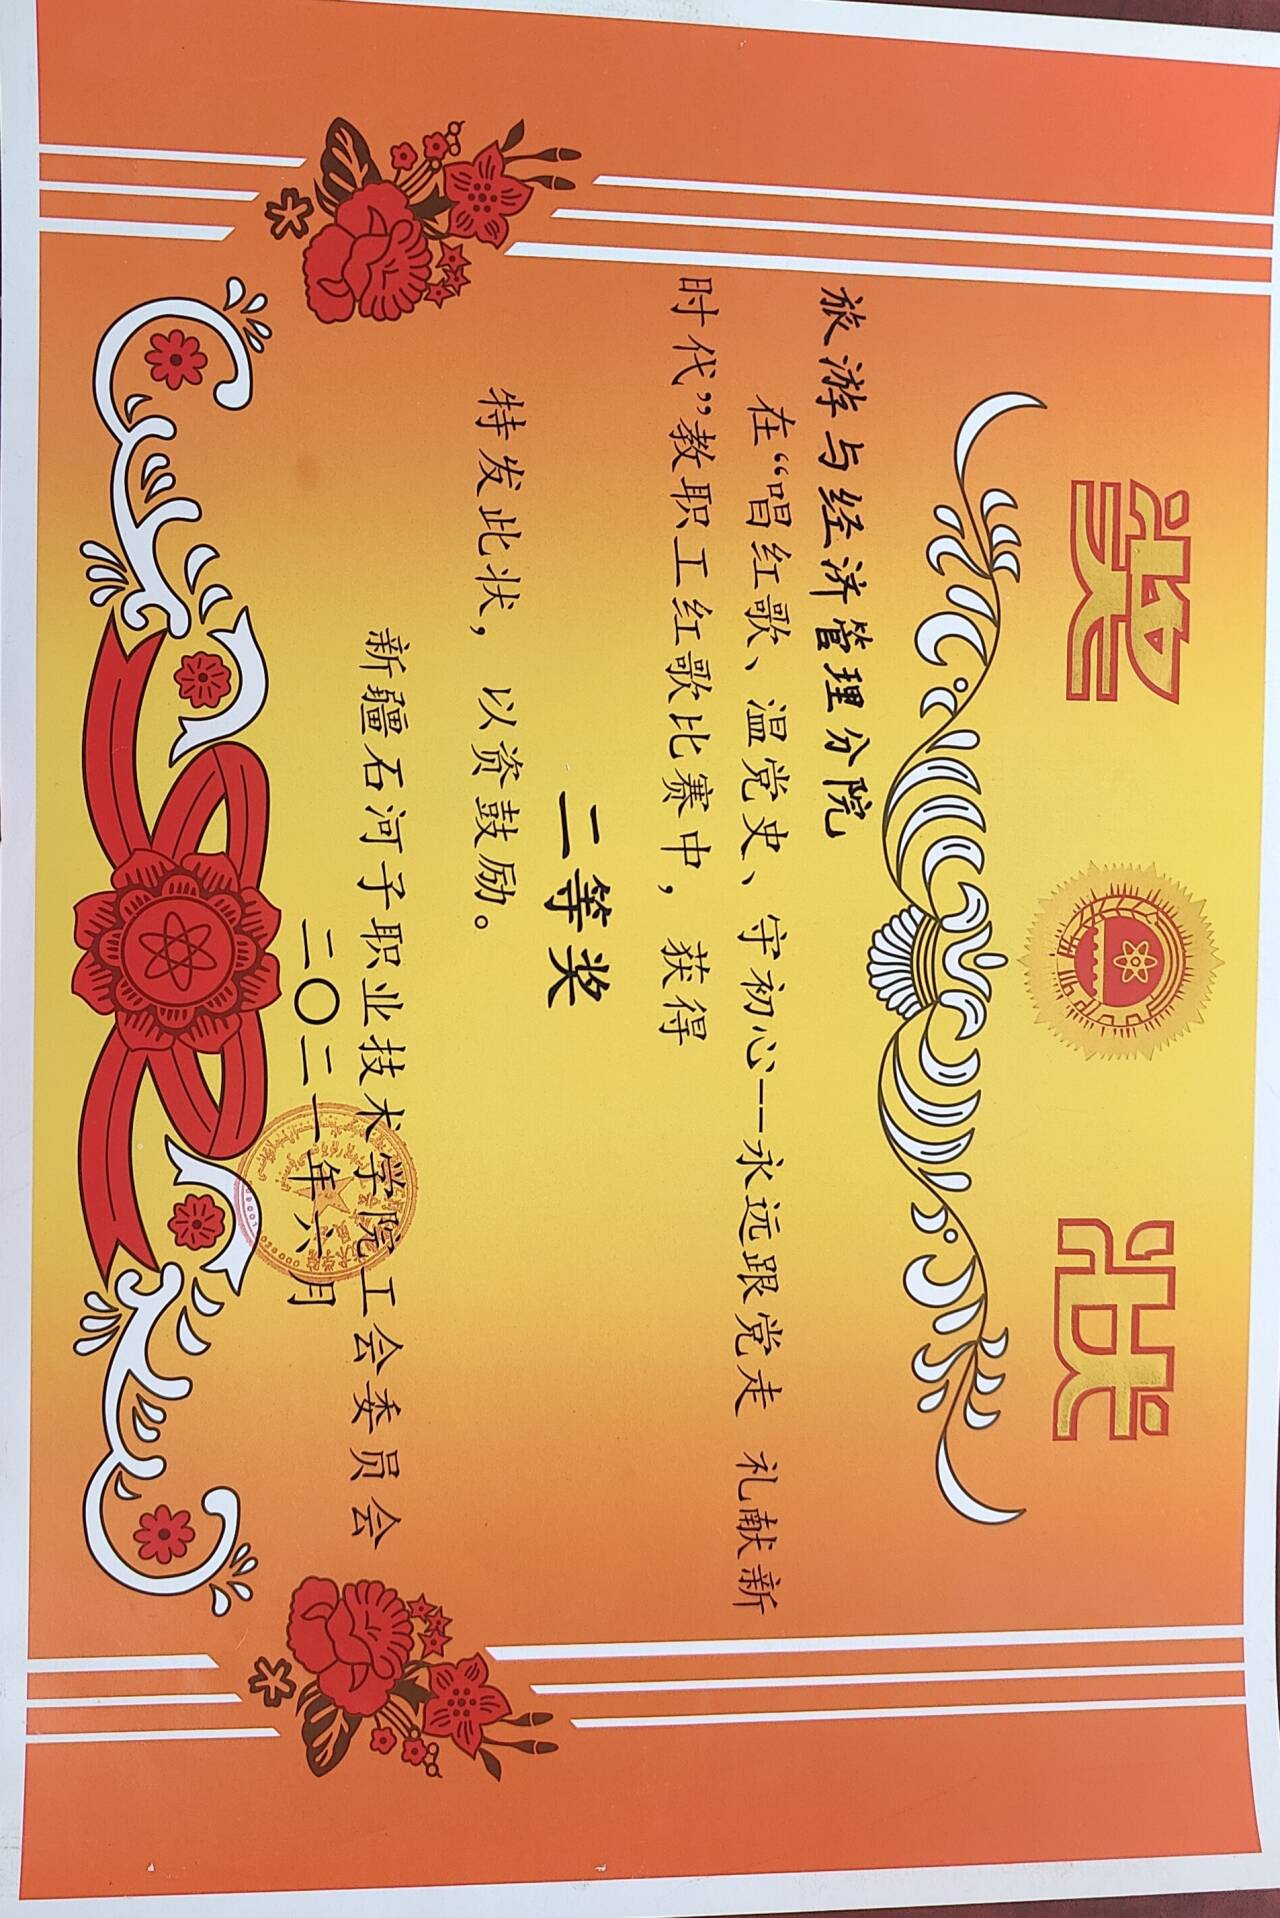 奖状
旅游与经济管理分院
在“唱红歌、温党史、守初心--永远跟党走 礼献新
时代”教职工红歌比赛中，获得
二等奖
特发此状，以资鼓励。
新疆石河子职业技术学院工会委员会
二〇二一年六月